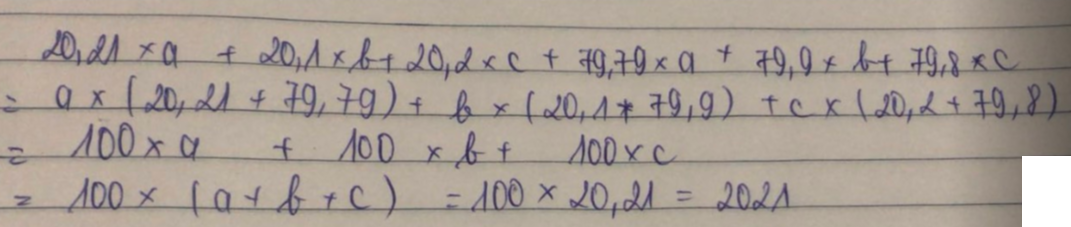 20,21 × a + 20,1 × b + 20,2 × c + 79,79 × a + 79,9 × b + 79,8 × c
= a × (20,21 + 79,79) + b × (20,1 + 79,9) + c × (20,2 + 79,8)
= 100 × a + 100 × b + 100 × c
= 100 × (a + b + c) = 100 × 20,21 = 2021